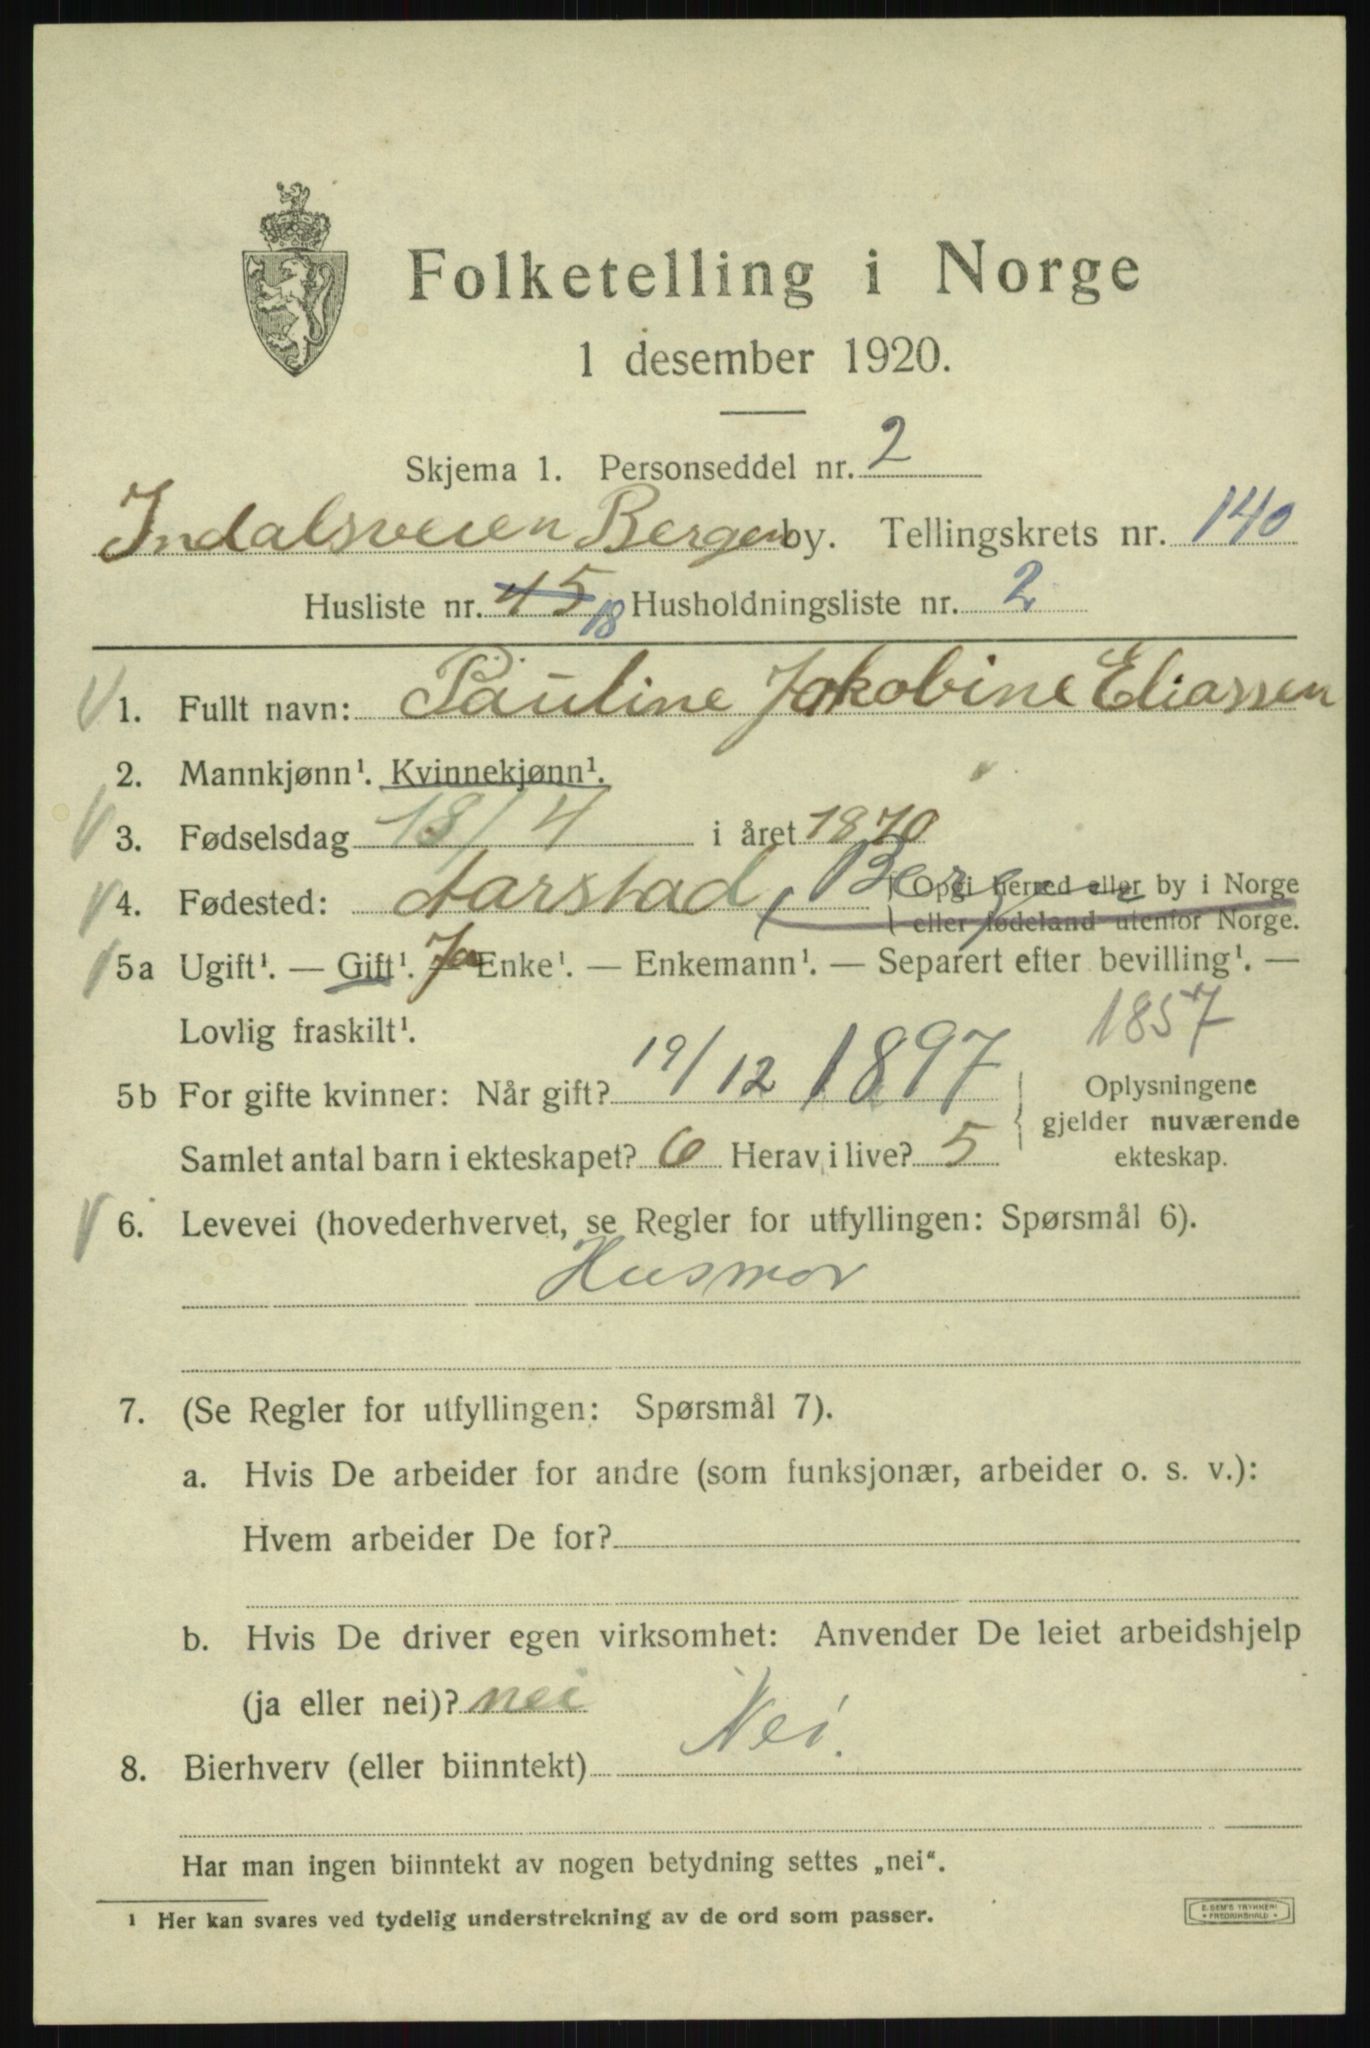 Folketelling i Norge
1 desember 1920.
Skjema 1. Personseddel nr. 2
Indalsveien Bergen by. Tellingskrets nr. 140
Husliste nr. 45 18 Husholdningsliste nr. 2
1. Fullt navn: Pauline Jakobine Eliassen
2. Mannkjønn¹. Kvinnekjønn¹.
3. Fødselsdag 18/4 i året 1870
4. Fødested: Aarstad, Bergen Opgi herred eller by i Norge
eller fødeland utenfor Norge.
5a Ugift¹. — Gift¹. Ja Enke¹. — Enkemann¹. — Separert efter bevilling¹. —
Lovlig fraskilt¹.
1857
5b For gifte kvinner: Når gift? 19/12 1897
Samlet antal barn i ekteskapet? 6 Herav i live? 5
Oplysningene
gjelder nuværende
ekteskap.
6. Levevei (hovederhvervet, se Regler for utfyllingen: Spørsmål 6).
Husmor
7. (Se Regler for utfyllingen: Spørsmål 7).
a. Hvis De arbeider for andre (som funksjonær, arbeider o. s. v.):
Hvem arbeider De for?
b. Hvis De driver egen virksomhet: Anvender De leiet arbeidshjelp
(ja eller nei)? nei
8. Bierhverv (eller biinntekt) Nei.
Har man ingen biinntekt av nogen betydning settes „nei“.
¹ Her kan svares ved tydelig understrekning av de ord som passer.
E. SEM'S TRYKKERI
• FREDRIKSHALD •